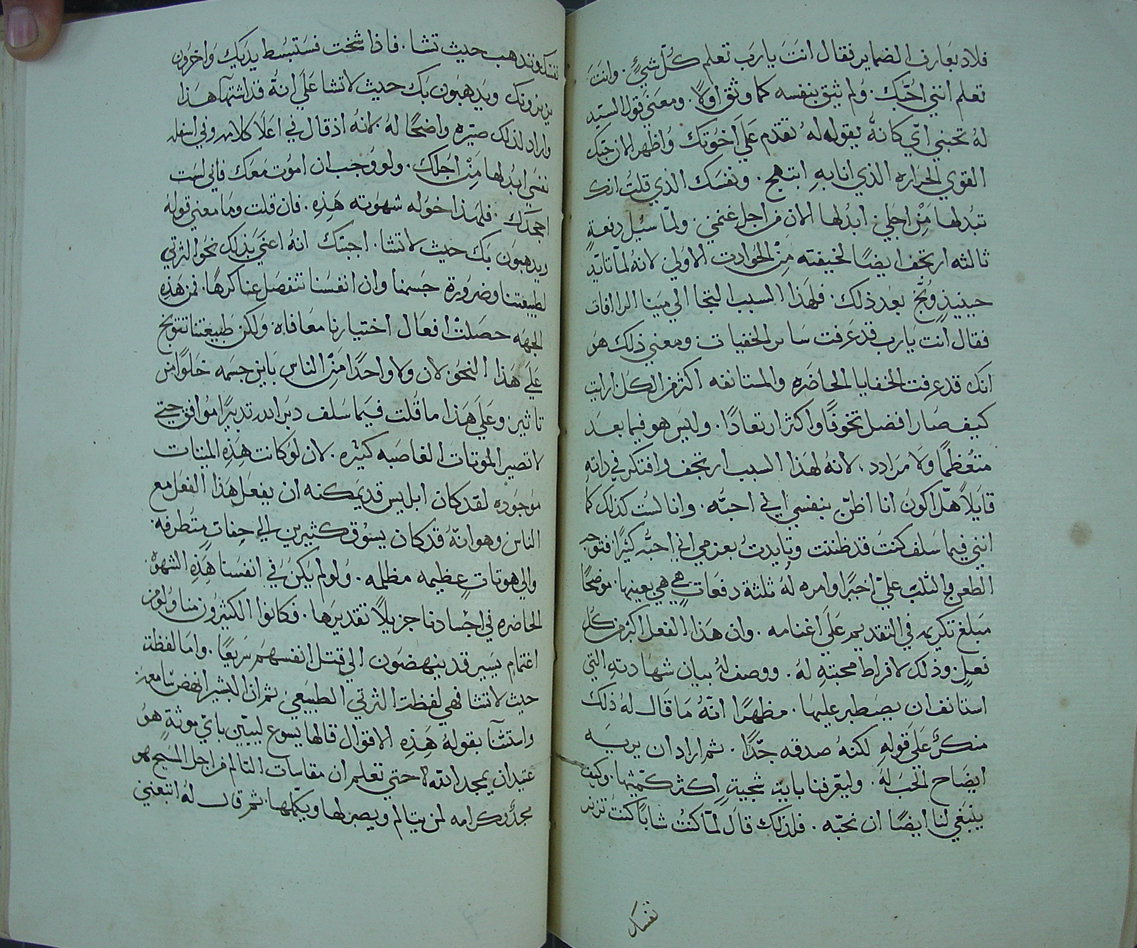 فلاد بعارف الضماير فقال انت يا رب تعلم كل شيءٍ. وانت
تعلم انني احبك. ولم يثق بنفسه كما وثق اولاً. ومعنى قول السيد
له تحبني اي كانهُ يقول له تقدم على اخوتك واظهر الان حبك
القوي الحراره الذي انا به ابتهج. ونفسك الذي قلت انك
تبدلها من اجلي. ابدلها الان من اجل غنمي. ولما سيل دفعة
ثالثه ارتجف ايضًا لخيفته من الحوادث الاولي لانه لما تايد
حينيذٍ وبخ بعد ذلك. فلهذا السبب التجا الي مينا الرافات
فقال انت يا رب قد عرفت ساير الخفيات ومعني ذلك هو
انك قد عرفت الخفايا الحاضره والمستانفه اكثر من الكل ارايت
كيف صار افضل تخوفًا واكثر ارتعادًا. وليس هو فيما بعد
متعظمًا ولا مرادد، لانه لهذا السبب ارتجف وافتكر في ذاته
قايلاً هل اكون انا اظن بنفسي اني احبه. وانا لست كذلك كما
انني فيما سلف كنت قد ظننت وتايدت بعزمي اني احبه كثيرًا فتوجه
الطعن والثلب علي اخيرًا وامره لهُ ثلثة دفعات هي هي بعينها. موضحًا
مبلغ تكريمه في التقديم على اغنامه. وان هذا الفعل اكثر من كل
فعلٍ وذلك لافراط محبته لهُ. ووصف له بيان شهادته التي
استانف ان يصطبر عليها. مظهرًا انه ما قال له ذلك
منكرً على قوله لكنه صدقه جدًا. ثم اراد ان يريه
ايضاح الحب له. وليعرفنا باية سجية اكثر كميتها وكيف
ينبغي لنا ايضًا ان نحبه. فلذلك قال لما كنت شابًا كنت تزنر
نفسك
نفسك وتذهب حيث تشا. فاذا شخت فستبسط يديك واخرون
يزنرونك ويذهبون بك حيث لا تشا على انهُ قد اشتها هذا
واراد لذلك صيره واضحًا لهُ لانهُ اذ قال في اعلا كلامه وفي اسفله
نفسي ابدلها من اجلك. ولو وجب ان اموت معك فاني لست
اجحدك. فلهذا خوله شهوته هذه. فان قلت وما معني قوله
ويذهبون بك حيث لا تشا. اجبتك انه اعني بذلك نحو الثرثي
لطبيعتنا وضرورة جسمنا وان انفسنا تنفصل عنا كرهًا، فمن هذه
الجهه حصلت افعال اختيارنا معافاه. ولكن طبيعتنا تتوبخ
علي هذا النحو. لان ولا واحدًا من الناس باين جسمه خلوًا من
تاثير وعلى هذا ما قلت فيما سلف دبر الله تدبيرًا موافق حتي
لا تصير الموتات الغاصبه كثيره. لان لو كانت هذه الميتات
موجوده لقد كان ابليس قد يمكنه ان يفعل هذا الفعل مع
الناس وهو انهُ قد كان يسوق كثيرين الي جفات متطرفه
والي هوتات عظيمه مظلمه. ولو لم يكن في انفسنا هذه الشهوه
الحاضره في اجسادنا جزيلاً تقديرها. فكانوا الكثيرون منا ولو من
اغتمام يسير قد ينهضون الي قتل انفسهم سريعًا. واما لفظة
حيث لا تشا فهي لفظت الثرثي الطبيعي ثم ان البشير انهض سامعه
واستثنا بقوله هذه الاقوال قالها يسوع ليبين باي موتة هو
عتيد ان يمجد الله. حتي تعلم ان مقاسات التالم من اجل المسيح هو
مجدٌ وكرامه لمن يتالم ويصبر لها ويكملها ثم قال لهُ اتبعني